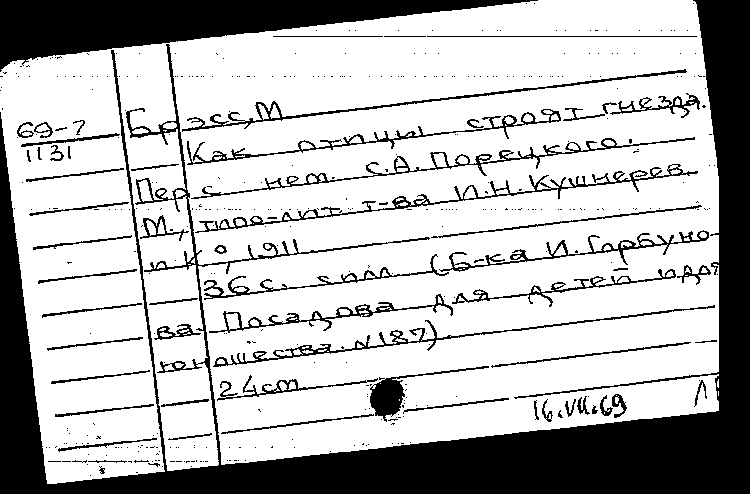 69-7
1131
Брэсс, М
Как птицы строят гнезда.
Пер с нем. С.А. Порецкого.
М., типо-лит. т-ва И.Н. Кушнерев
и К°, 1911.
36 с. с илл (Б-ка И. Горбуно-
ва-Посадова для детей и для
юношества. N 187).
24 cm
16.VII.69